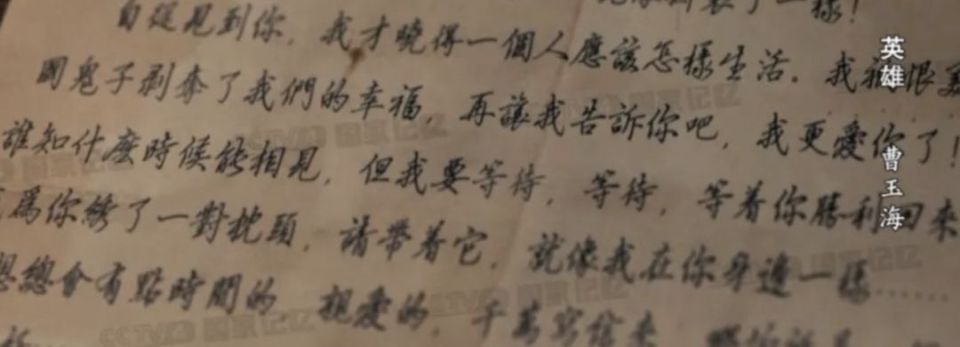 了一樣！
自從見到你，我才曉得一個人應該怎樣生活。我痛恨美
國鬼子剥奪了我們的幸福，再讓我告訴你吧，我更愛你了！
誰知什麽時候能相見，但我要等待，等待，等着你勝利回來
爲你綉了一對枕頭，請帶着它，就像我在你身邊一樣……
總會有點時間的 親愛的，千萬寫信来，
英雄 曹玉海